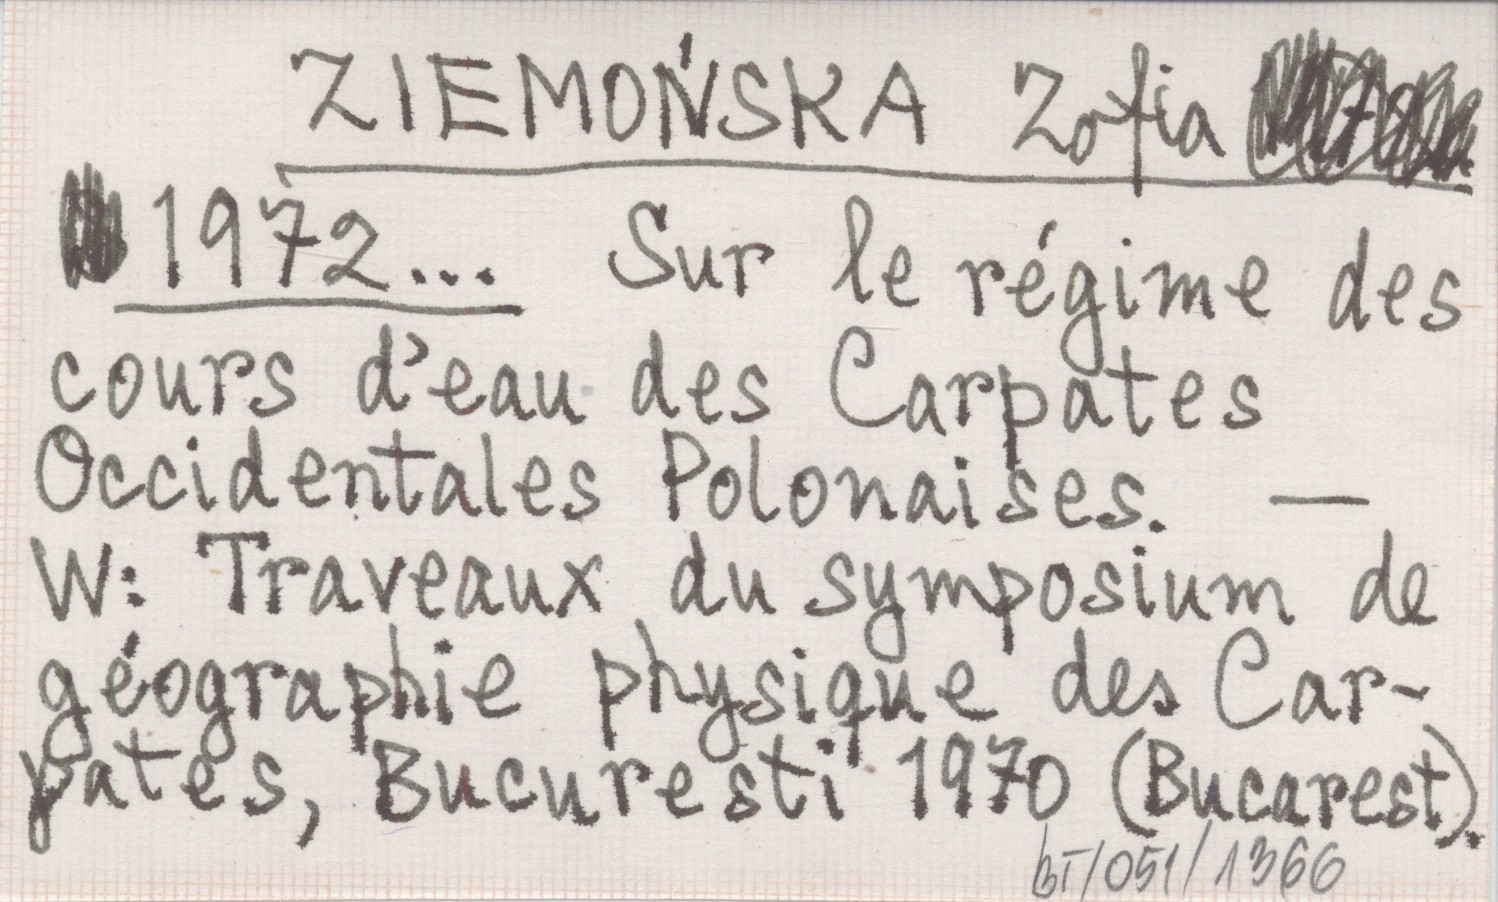 ZIEMOŃSKA Zofia
1972... Sur le régime des
cours d'eau des Carpates
Occidentales Polonaises. —
W: Traveaux du symposium de
géographie physique des Car-
pates, Bucuresti 1970 (Bucarest).
BT/051/1366